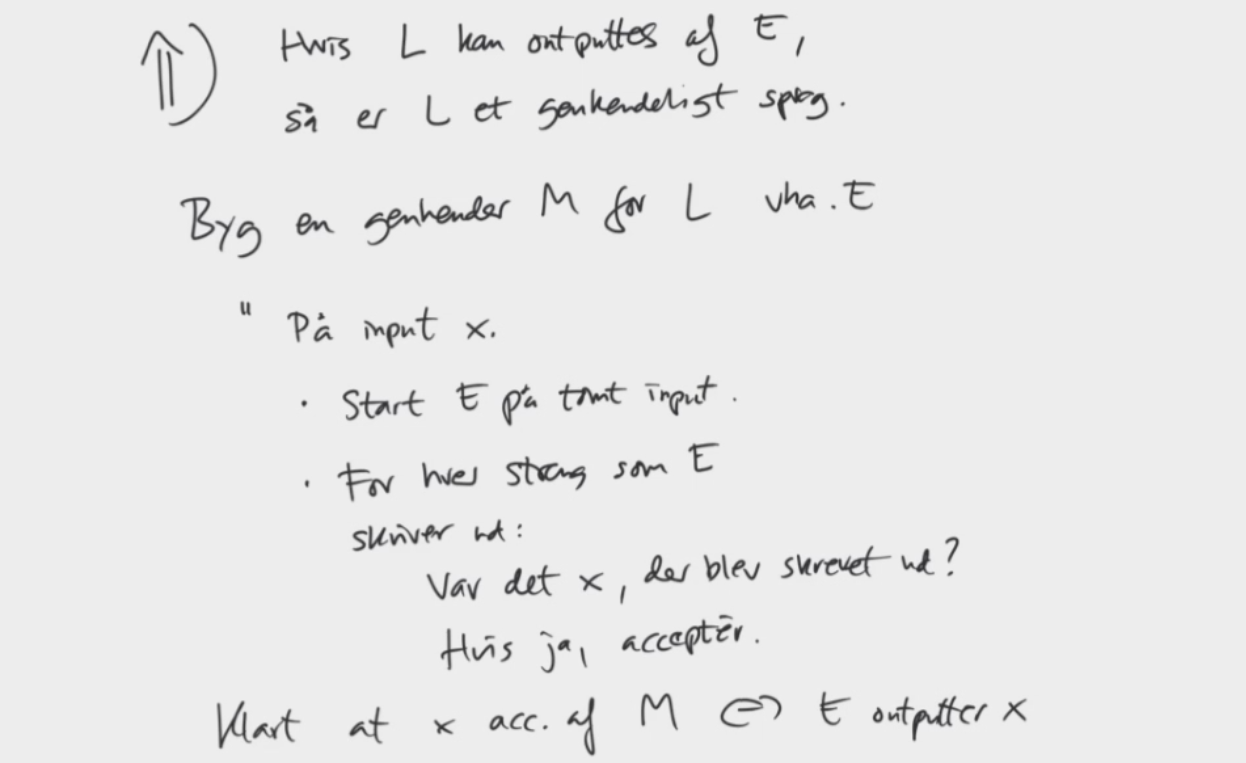 ⇑) Hvis L kan outputtes af E,
så er L et genkendeligt sprog.
Byg en genkender M for L vha. E
" På input x.
• Start E på tomt input.
• For hver streng som E
skriver ud:
Var det x, der blev skrevet ud?
Hvis ja, acceptér.
Klart at x acc. af M ⇔ E outputter x